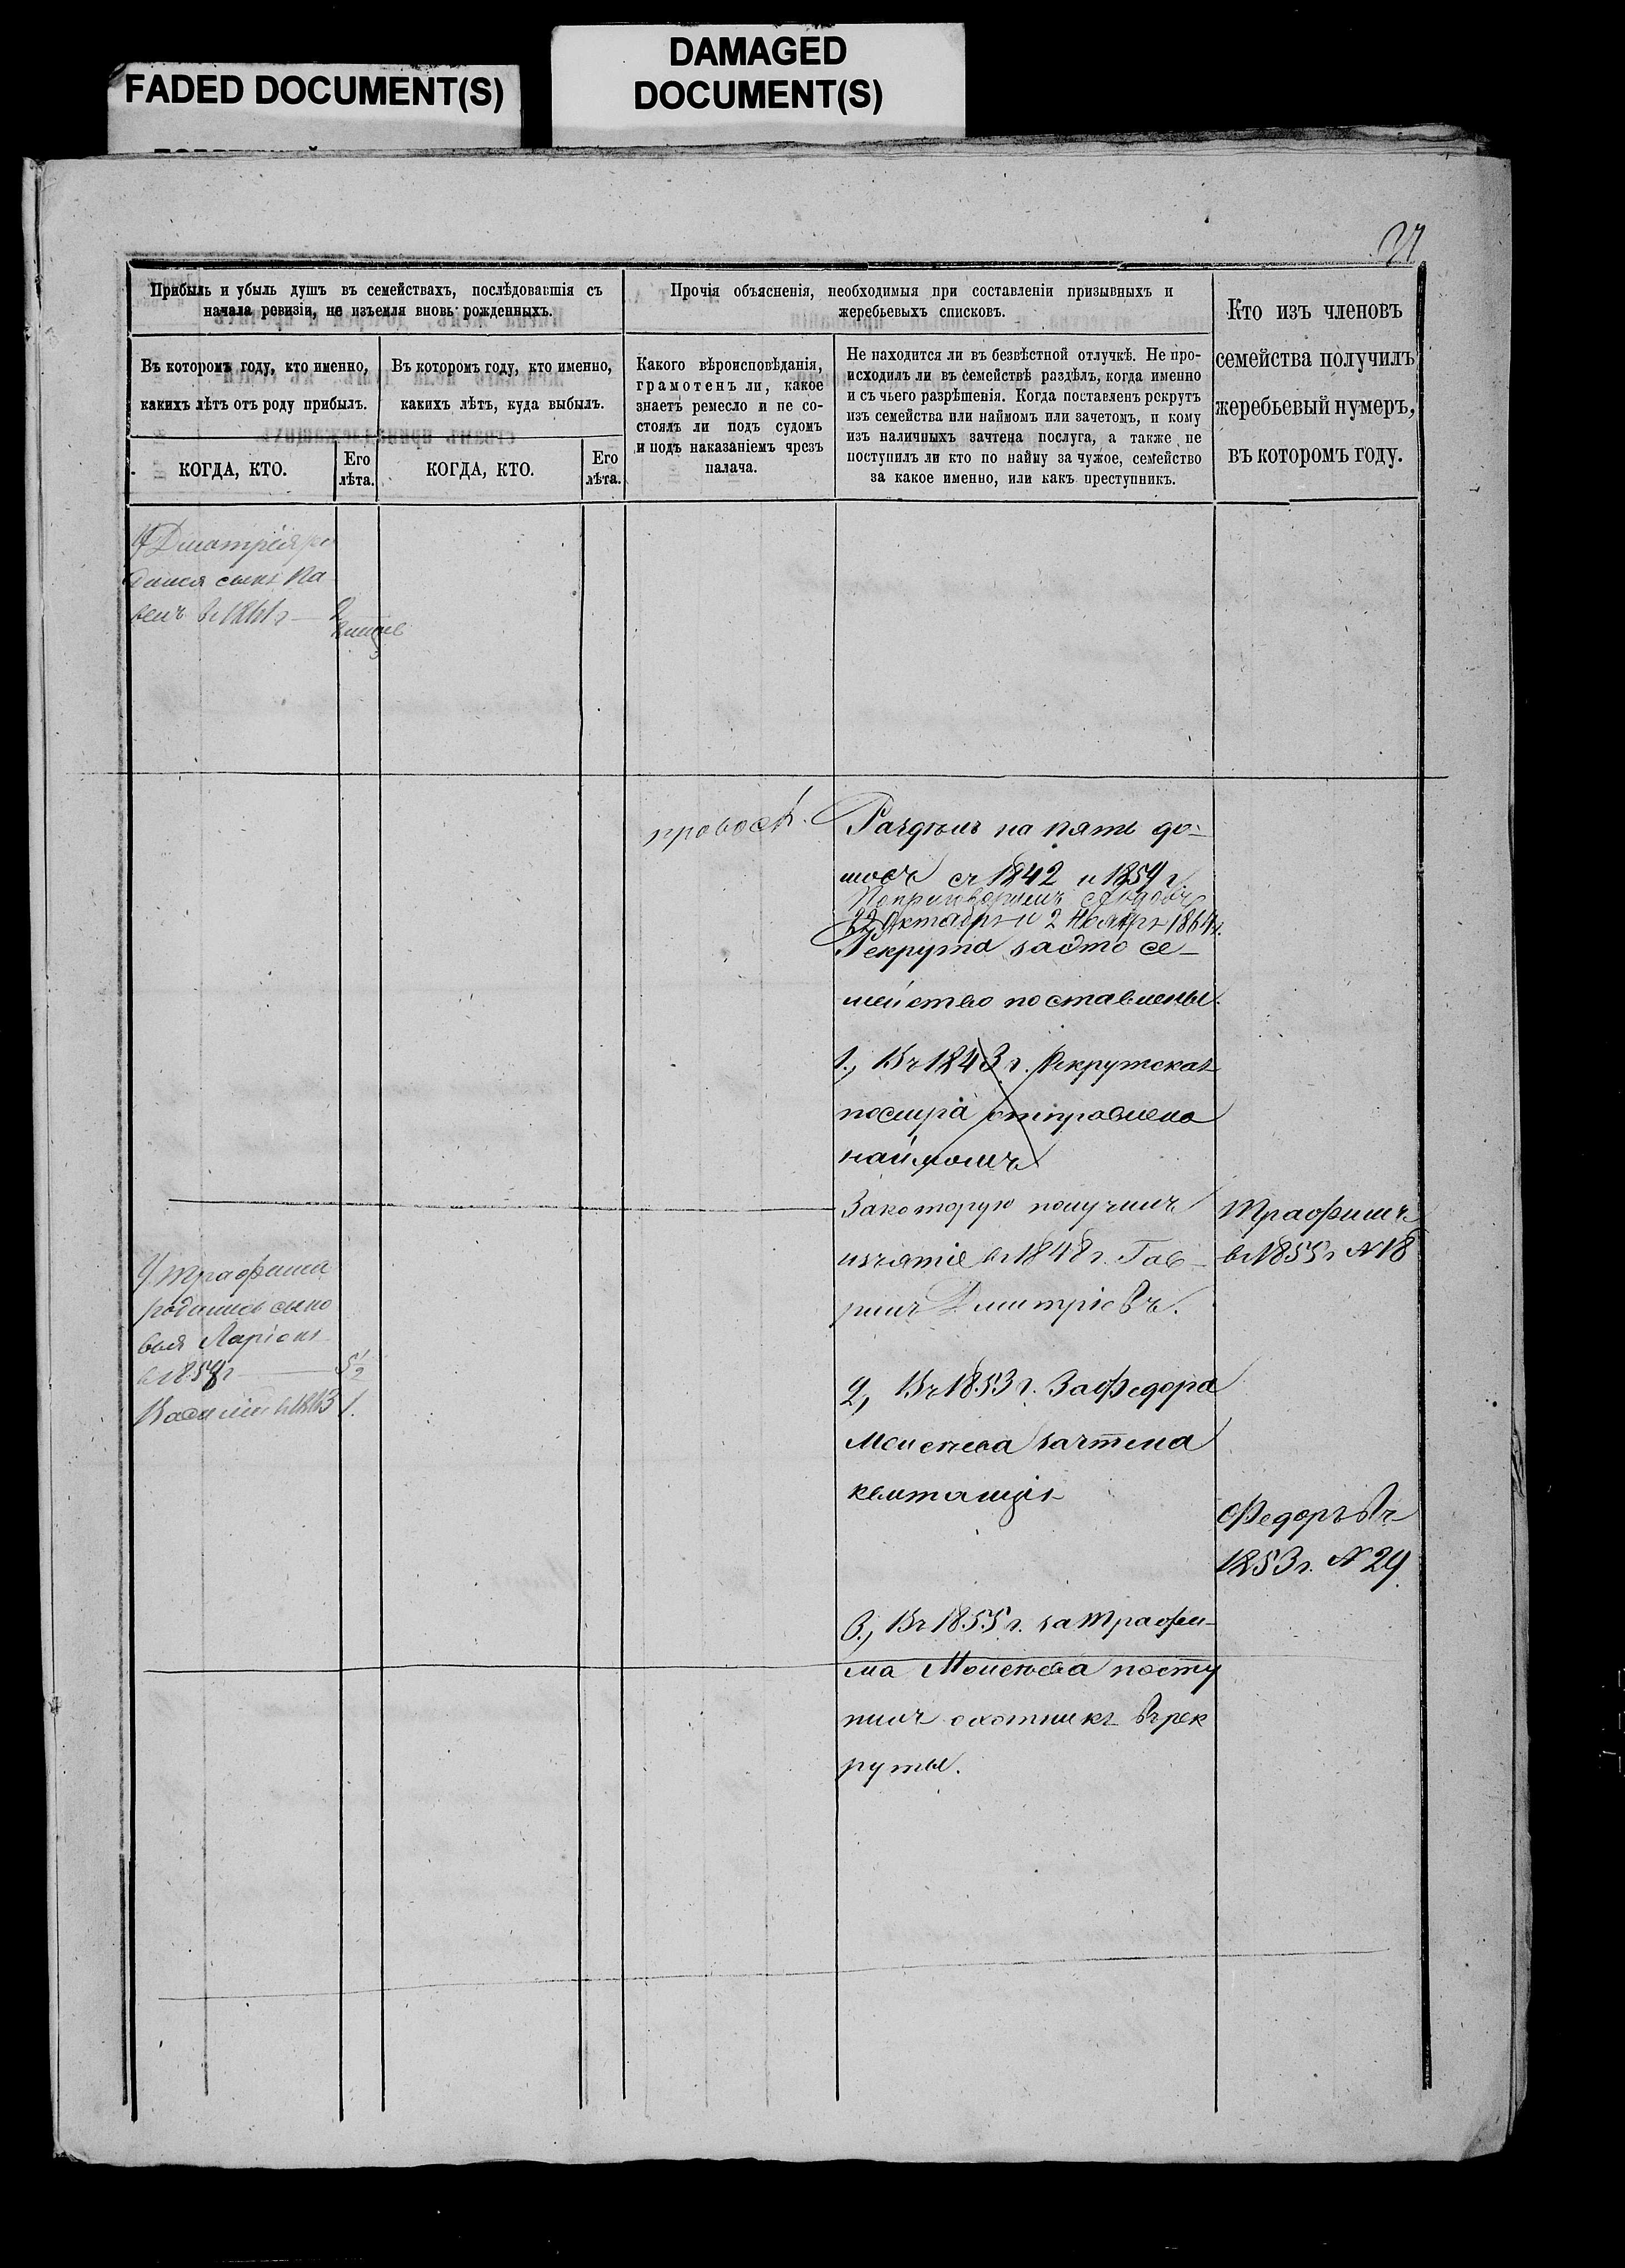 FADED DOCUMENT(S)
DAMAGED
DOCUMENT(S)
Прибыль и убыль душъ въ семействахъ, послѣдовавшія съ
начала ревизіи, не изъемля вновь рожденныхъ.
Въ которомъ году, кто именно,
какихъ лѣтъ отъ роду прибылъ.
КОГДА, КТО.
Его
лѣта.
Въ которомъ году, кто именно,
какихъ лѣтъ, куда выбылъ.
КОГДА, КТО.
Его
лѣта.
Прочія объясненія, необходимыя при составленіи призывныхъ и
жеребьевыхъ списковъ.
Какого вѣроисповѣданія,
грамотенъ ли, какое
знаетъ ремесло и не со-
стоялъ ли подъ судомъ
и подъ наказаніемъ чрезъ
палача.
Не находится ли въ безвѣстной отлучкѣ. Не про-
исходилъ ли въ семействѣ раздѣлъ, когда именно
и съ чьего разрѣшенія. Когда поставленъ рекрутъ
изъ семейства или наймомъ или зачетомъ, и кому
изъ наличныхъ зачтена послуга, а также не
поступилъ ли кто по найму за чужое, семейство
за какое именно, или какъ преступникъ.
Кто изъ членовъ
семейства получилъ
жеребьевый нумеръ,
въ которомъ году.
У Дматрія ро
дился сынъ Па
велъ въ 1861 г — 2
правосл.
Раздѣлъ на пять до-
мовъ съ 1842 и 1854 г.
22 Октабрь и 2 Ноябрь 1864 г.
Рекрута за это се-
мейство поставлены.
1., Въ 1843 г. Рекрутская
отправлена
наймомъ
За которую получилъ
изъятіе въ 1848 г. Гав-
рилъ Дмитріевъ.
2, Въ 1853 г. За Федора
Моисѣева зачтена
квитанція
3., Въ 1855 г. за Трафи-
ма Моисѣева посту
пилъ охотникъ въ рек
руты.
У Трафима
родились сыно
вья Ларіонъ
в 1858 г — 5½
Василій в 1863 1.
Трафимъ
в 1855 г № 18
Федоръ въ
1853 г. № 29